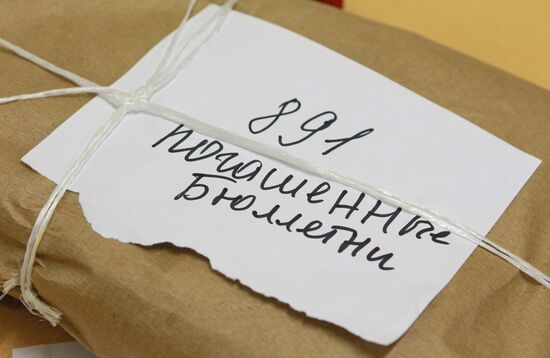 891
погашенные
Бюллетни